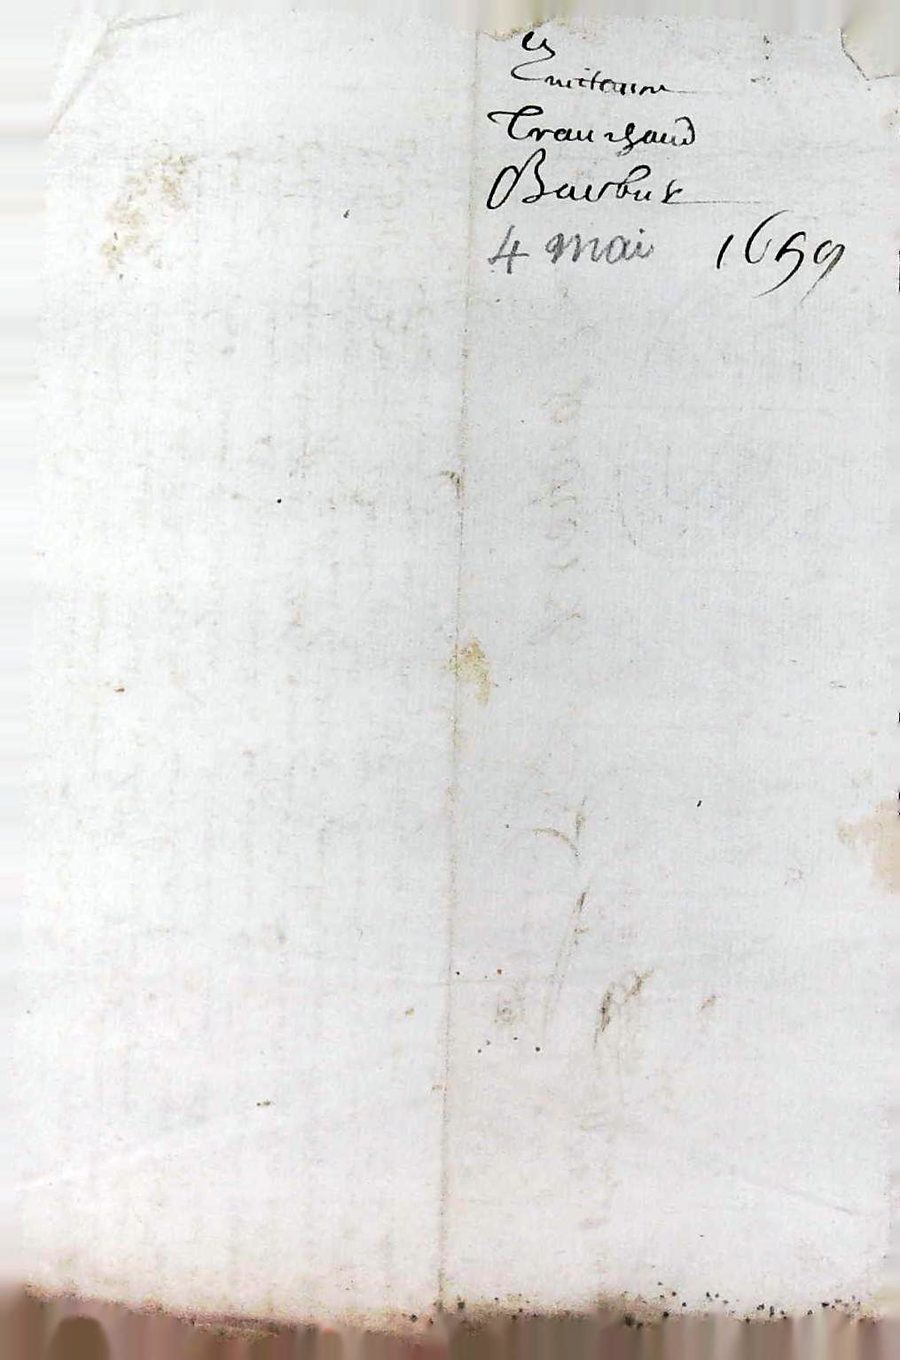 Quittance
Tranchand
Barbux
4 mai 1659